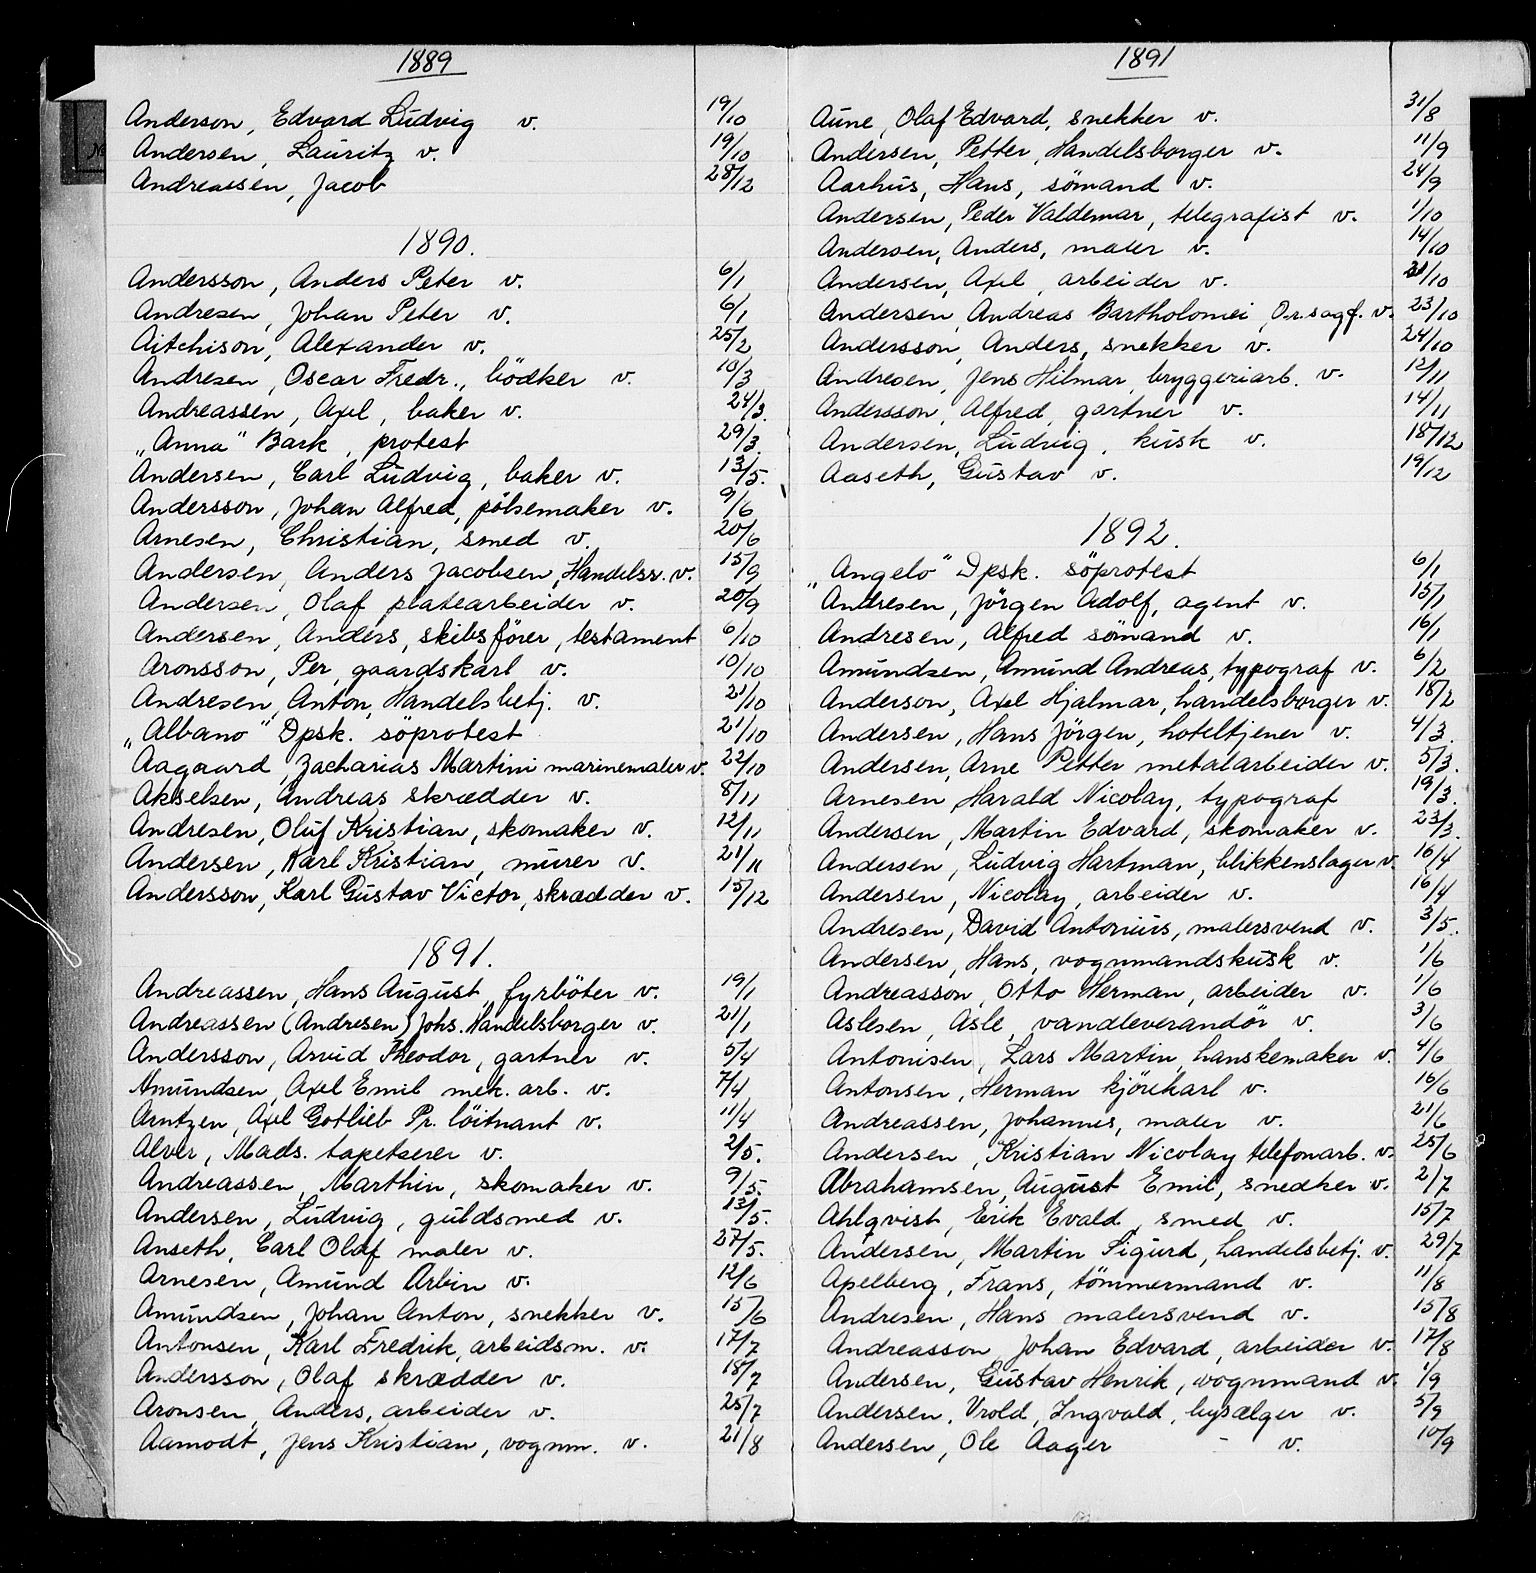 1889
Anderson, Edvard Ludvig v. 19/10
Andersen, Lauritz v. 19/10
Andreassen, Jacob 28/12
1890.
Andersson, Anders Peter v. 6/1
Andresen, Johan Peter v. 6/1
Aitchison, Alexander v. 25/2
Andresen, Oscar Fredr., bödker v. 10/3
Andreassen, Axel, baker v. 24/3.
„Anna" Bark, protest 29/3.
Andersen, Carl Ludvig, baker v. 13/5.
Andersson, Johan Alfred, pölsemaker v. 9/6
Arnesen, Christian, smed v. 20/6
Andersen, Anders Jacobsen, Handelsr. v. 15/9
Andersen, Olaf platearbeider v. 20/9
Andersen, Anders, skibsförer, testament 6/10
Aronsson, Per, gaardskarl v. 10/10
Andresen, Anton, Handelsbetj. v. 21/10
„Albano" Dpsk. söprotest 21/10
Aagaard, Zacharias Martini marinemaler v. 22/10
Akselsen, Andreas skrædder v. 8/11
Andresen, Oluf Kristian, skomaker v. 12/11
Andersen, Karl Kristian, murer v. 21/11
Andersson, Karl Gustav Victor, skrædder v. 15/12
1891.
Andreassen, Hans August, fyrböter v. 19/1
Andreassen (Andresen) Johs. Handelsborger v. 21/1
Andersson, Arvid Theodor, gartner v. 5/4
Amundsen, Axel Emil mek. arb. v. 7/4
Arntzen, Axel Gotlieb Pr. löitnant v. 11/4
Alver, Mads. tapetserer v. 2/5.
Andreassen, Marthin, skomaker v. 9/5.
Andersen, Ludvig, guldsmed v. 13/5.
Anseth, Carl Olaf maler v. 27/5.
Arnesen, Amund Arbin v. 12/6
Amundsen, Johan Anton, snekker v. 15/6
Antonsen, Karl Fredrik, arbeidsm. v. 17/7
Andersson, Olaf skrædder v. 18/7
Aronsen, Anders, arbeider v. 25/7
Aamodt, Jens Kristian, vognm. v. 21/8
1891
Aune, Olaf Edvard, snekker v. 31/8
Andersen, Petter, Handelsborger v. 11/9
Aarhus, Hans, sömand v. 24/9
Andersen, Peder Valdemar, telegrafist v. 1/10
Andersen, Anders, maler v. 14/10
Andersen, Axel, arbeider v. /10
Andersen, Andreas Bartholomei, O.r.sagf. v. 23/10
Andersson, Anders, snekker v. 24/10
Andresen, Jens Hilmar, bryggeriarb. v. 12/11
Andersson, Alfred, gartner v. 14/11
Andersen, Ludvig, kusk v. 18/12
Aaseth, Gustav v. 19/12
1892.
„Angelo" Dpsk. söprotest 6/1
Andresen, Jörgen Adolf, agent v. 15/1
Andresen, Alfred sömand v. 16/1
Amundsen, Amund Andreas, typograf v. 6/2
Anderson, Axel Hjalmar, handelsborger v. 18/2
Andersen, Hans Jörgen, hoteltjener v. 4/3.
Andersen, Arne Petter metalarbeider v. 5/3.
Arnesen, Harald Nicolay, typograf 19/3.
Andersen, Martin Edvard, skomaker v. 23/3.
Andersen, Ludvig Hartman, blikkenslager v. 16/4
Andersen, Nicolay, arbeider v. 16/4
Andresen, David Antonius, malersvend v. 3/5.
Andersen, Hans, vognmandskusk v. 1/6
Andreasson, Otto Herman, arbeider v. 1/6
Aslesen, Asle, vandleverandör v. 3/6
Antonisen, Lars Martin, hanskemaker v. 4/6
Antonsen, Herman kjörekarl v. 16/6
Andreassen, Johannes, maler v. 21/6
Andersen, Kristian Nicolay telefonarb. v. 25/6
Abrahamsen, August Emil, snedker v. 2/7
Ahlqvist, Erik Evald, smed v. 15/7
Andersen, Martin Sigurd, handelsbetj. v. 29/7
Apelberg, Frans, tömmermand v. 11/8
Andresen, Hans malersvend v. 15/8
Andreasson, Johan Edvard, arbeider v. 17/8
Andersen, Gustav Henrik, vognmand v. 1/9
Andersen, Vrold, Ingvald, bysælger v. 5/9
Andersen, Ole Aager - v. 10/9